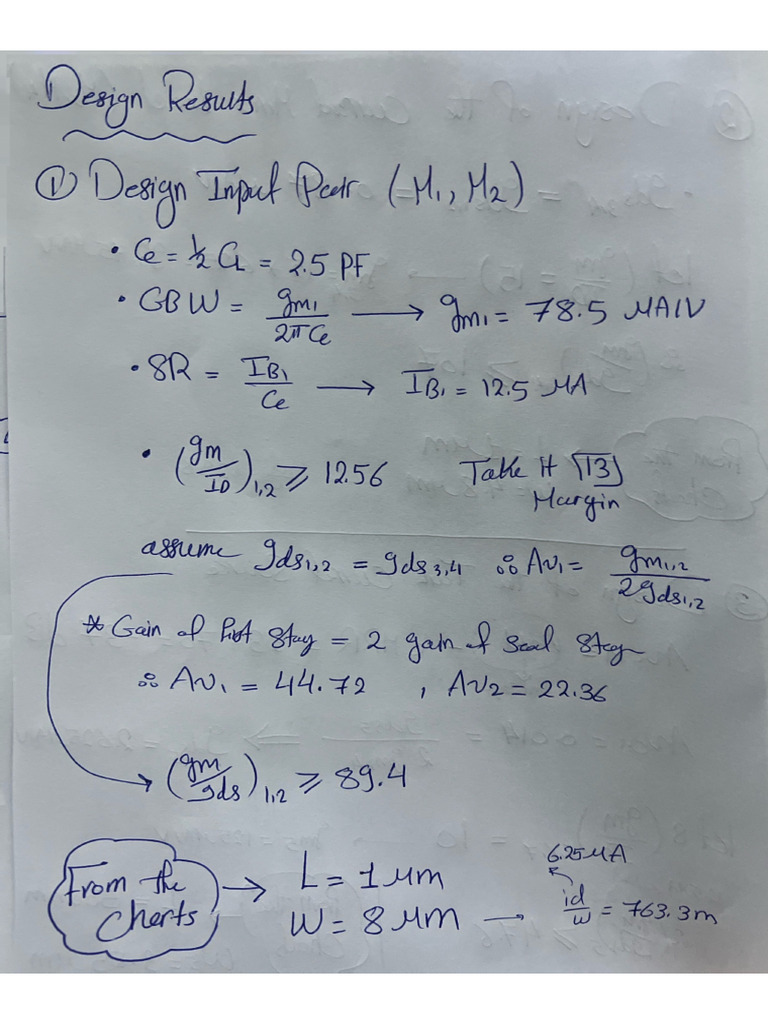 Design Results
① Design Input Pair (M₁, M₂)
• Cc = ½ CL = 2.5 PF
• GBW = gm₁/2πCc ⟶ gm₁ = 78.5 μA/V
• SR = IB₁/Cc ⟶ IB₁ = 12.5 μA
• (gm/ID)₁,₂ ⩾ 12.56 Take it 13
Margin
assume gds₁,₂ = gds₃,₄ ∴ Av₁ = gm₁,₂/2gds₁,₂
* Gain of first stage = 2 gain of second stage
∴ Av₁ = 44.72 , Av₂ = 22.36
(gm/gds)₁,₂ ⩾ 89.4
From the
Charts
→ L = 1 μm
W = 8 μm → id/w = 763.3m
6.25 μA